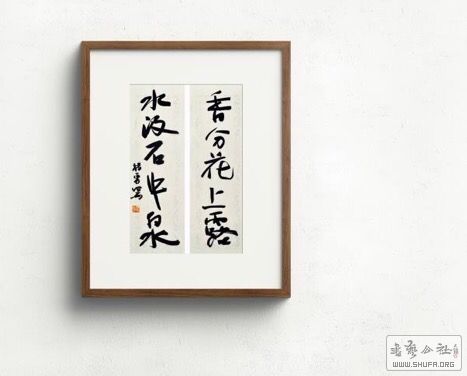 香分花上露
水汲石中泉
书艺公社
WWW.SHUFA.ORG